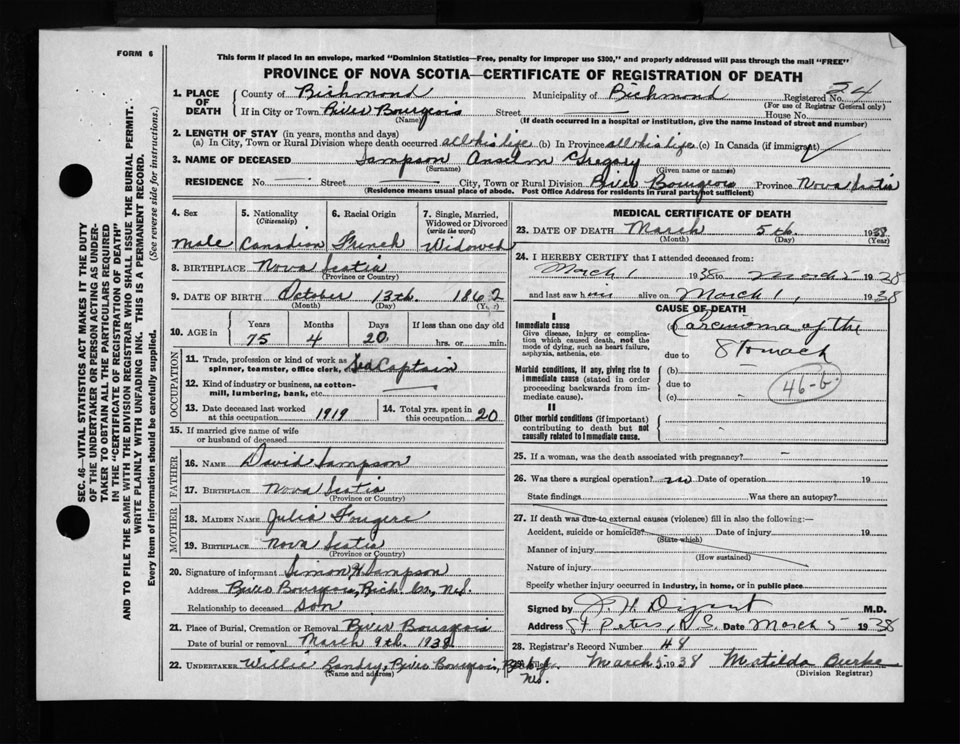 FORM 6
This form if placed in an envelope, marked "Dominion Statistics—Free, penalty for improper use $300," and properly addressed will pass through the mail "FREE"
PROVINCE OF NOVA SCOTIA—CERTIFICATE OF REGISTRATION OF DEATH
SEC. 46—VITAL STATISTICS ACT MAKES IT THE DUTY
OF THE UNDERTAKER OR PERSON ACTING AS UNDER-
TAKER TO OBTAIN ALL THE PARTICULARS REQUIRED
IN THE "CERTIFICATE OF DEATH"
AND TO FILE THE SAME WITH THE DIVISION REGISTRAR WHO SHALL ISSUE THE BURIAL PERMIT.
WRITE PLAINLY WITH UNFADING INK. THIS IS A PERMANENT RECORD.
Every item of information should be carefully supplied. (See reverse side for instructions.)
1. PLACE OF DEATH
County of Richmond Municipality of Richmond Registered No. 34
(For use of Registrar General only)
If in City or Town River Bourgeois Street House No.
(Name) (If death occurred in a hospital or institution, give the name instead of street and number)
2. LENGTH OF STAY (in years, months and days)
(a) In City, Town or Rural Division where death occurred all his life (b) In Province all his life (c) In Canada (if immigrant)
3. NAME OF DECEASED Sampson Anselm Gregory
(Surname) (Given name or names)
RESIDENCE No. Street City, Town or Rural Division River Bourgeois Province Nova Scotia
(Residence means usual place of abode. Post Office Address for residents in rural parts not sufficient)
4. Sex 5. Nationality 6. Racial Origin 7. Single, Married,
(Citizenship) Widowed or Divorced
(write the word)
Male Canadian French Widowed
8. BIRTHPLACE Nova Scotia
(Province or Country)
9. DATE OF BIRTH October 13th. 1862
(Month) (Day) (Year)
10. AGE in Years Months Days If less than one day old
75 4 20 hrs. or min.
OCCUPATION
11. Trade, profession or kind of work as spinner, teamster, office clerk, Sea Captain
12. Kind of industry or business, as cotton-mill, lumbering, bank, etc.
13. Date deceased last worked at this occupation 1919 14. Total yrs. spent in this occupation 20
15. If married give name of wife or husband of deceased
FATHER
16. NAME David Sampson
17. BIRTHPLACE Nova Scotia
(Province or Country)
MOTHER
18. MAIDEN NAME Julia Fougere
19. BIRTHPLACE Nova Scotia
(Province or Country)
20. Signature of informant Simon H Sampson
Address River Bourgeois, Rich. Co., N.S.
Relationship to deceased Son
21. Place of Burial, Cremation or Removal River Bourgeois
Date of burial or removal March 9th. 1938
22. UNDERTAKER Willie Landry, River Bourgeois, Rich. Co. N.S.
(Name and address)
MEDICAL CERTIFICATE OF DEATH
23. DATE OF DEATH March 5th. 1938
(Month) (Day) (Year)
24. I HEREBY CERTIFY that I attended deceased from:
March 1 1938 to March 5 1938
and last saw him alive on March 1, 1938
CAUSE OF DEATH
I
Immediate cause
Give disease, injury or complication which caused death, not the mode of dying, such as heart failure, asphyxia, asthenia, etc.
(a) Carcinoma of the
due to Stomach
Morbid conditions, if any, giving rise to immediate cause (stated in order proceeding backwards from immediate cause).
(b)
due to
(c)
46-b
II
Other morbid conditions (if important) contributing to death but not causally related to immediate cause.
25. If a woman, was the death associated with pregnancy?
26. Was there a surgical operation? no Date of operation 19
State findings Was there an autopsy?
27. If death was due to external causes (violence) fill in also the following:—
Accident, suicide or homicide? Date of injury 19
(State which)
Manner of injury
(How sustained)
Nature of injury
Specify whether injury occurred in industry, in home, or in public place
Signed by M.D.
Address St Peters, N.S. Date March 5 1938
28. Registrar's Record Number 48
29. Filed March 5 1938 Matilda Burke
(Division Registrar)